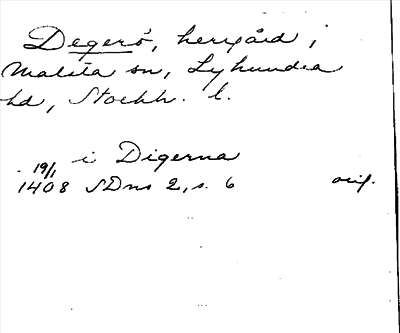 Degerö, herrgård i
Malsta sn, Lyhundra
hd, Stockh. l.
i Digerna
19/1
1408 SDns 2, s. 6 orig.